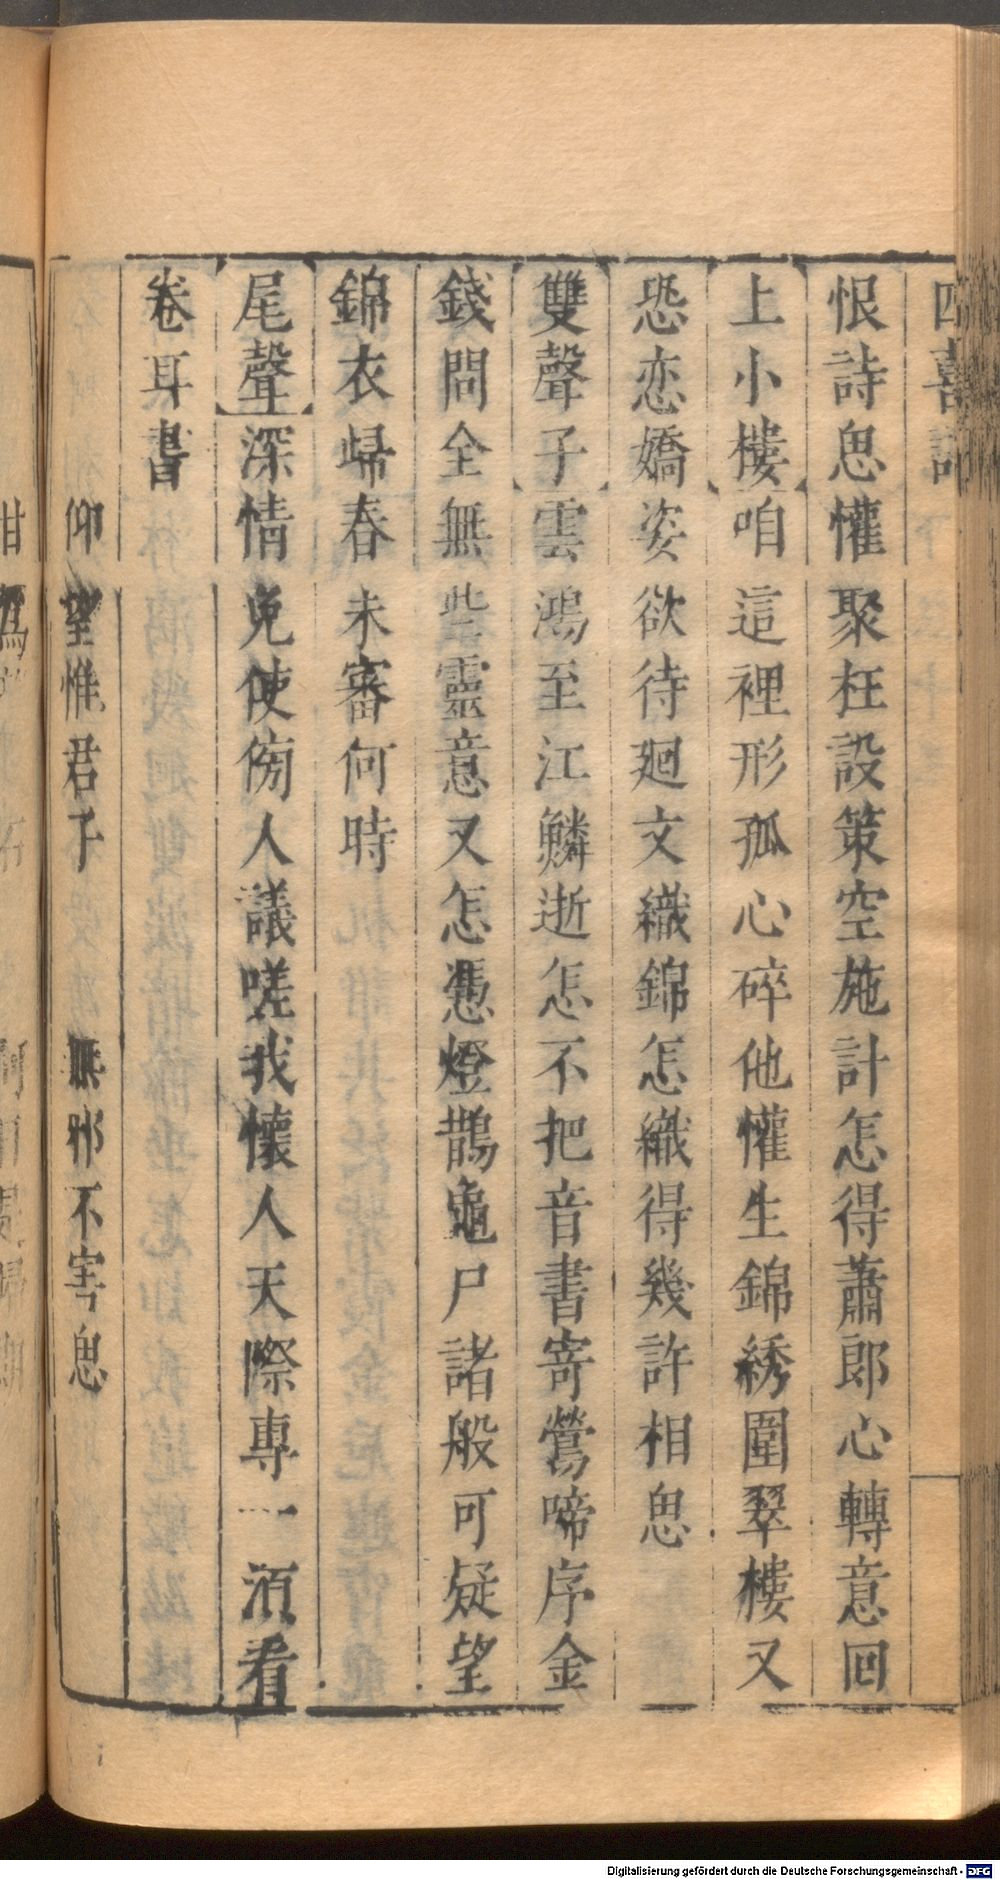 四喜記
恨詩思懽聚枉設策空施計怎得蕭郎心轉意回
上小樓咱這裡形孤心碎他懽生錦綉圍翠樓又
恐恋嬌姿欲待廻文織錦怎織得幾許相思
雙聲子雲鴻至江鱗逝怎不把音書寄鶯啼序金
錢問全無些靈意又怎憑燈鵲龜尸諸般可疑望
錦衣歸春未審何時
尾聲深情免使傍人議嗟我懷人天際專一須看
卷耳書
仰望惟君子 無邪不害思
Digitalisierung gefördert durch die Deutsche Forschungsgemeinschaft - DFG